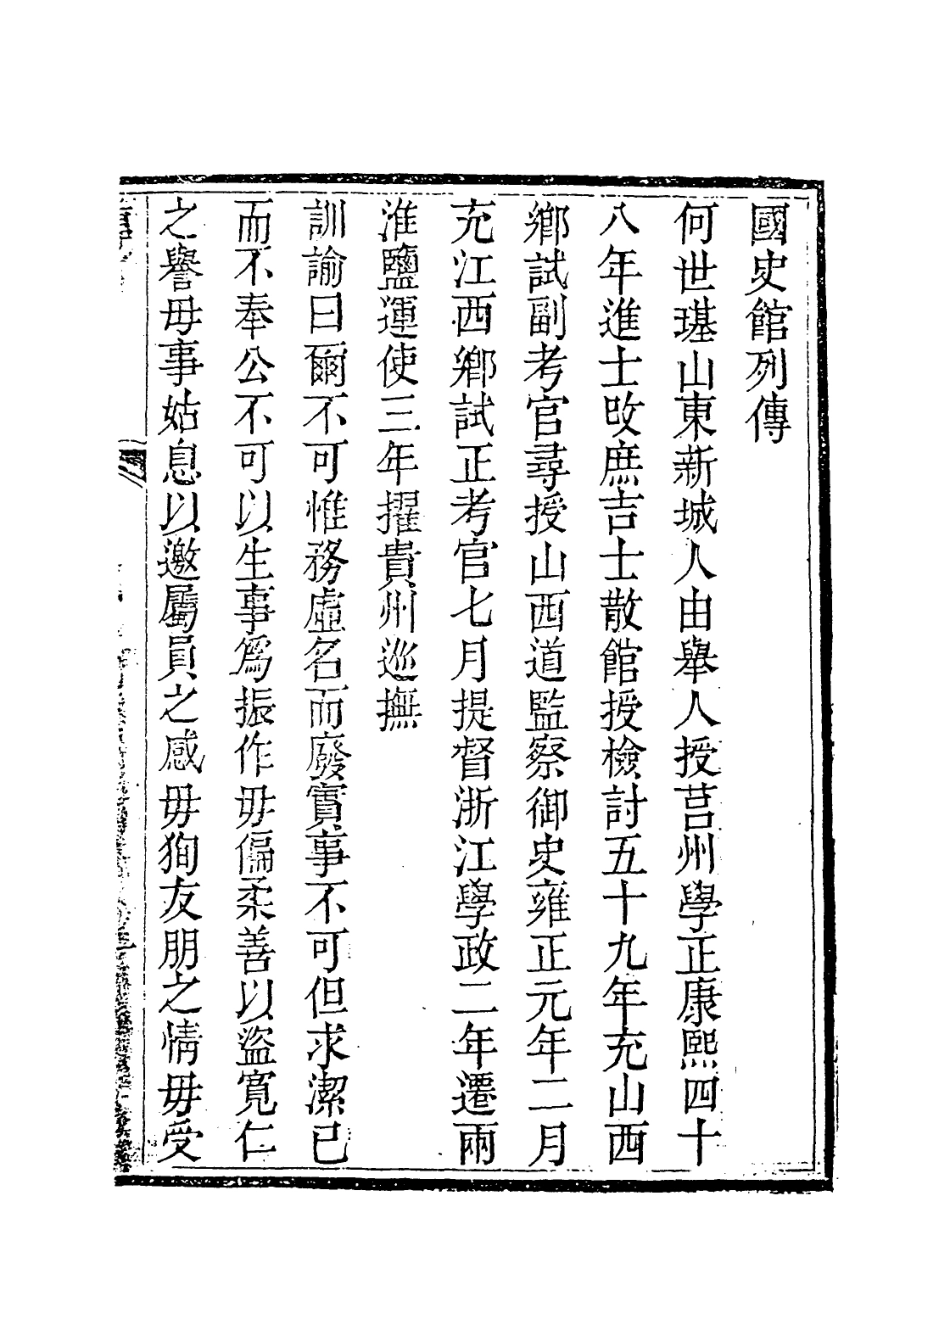 國史館列傳
何世璂山東新城人由舉人授莒州學正康熙四十
八年進士改庶吉士散館授檢討五十九年充山西
鄉試副考官尋授山西道監察御史雍正元年二月
充江西鄉試正考官七月提督浙江學政二年遷兩
淮鹽運使三年擢貴州巡撫
訓諭曰爾不可惟務虛名而廢實事不可但求潔已
而不奉公不可以生事爲振作毋偏柔善以盜寬仁
之譽毋事姑息以邀屬員之感毋狥友朋之情毋受